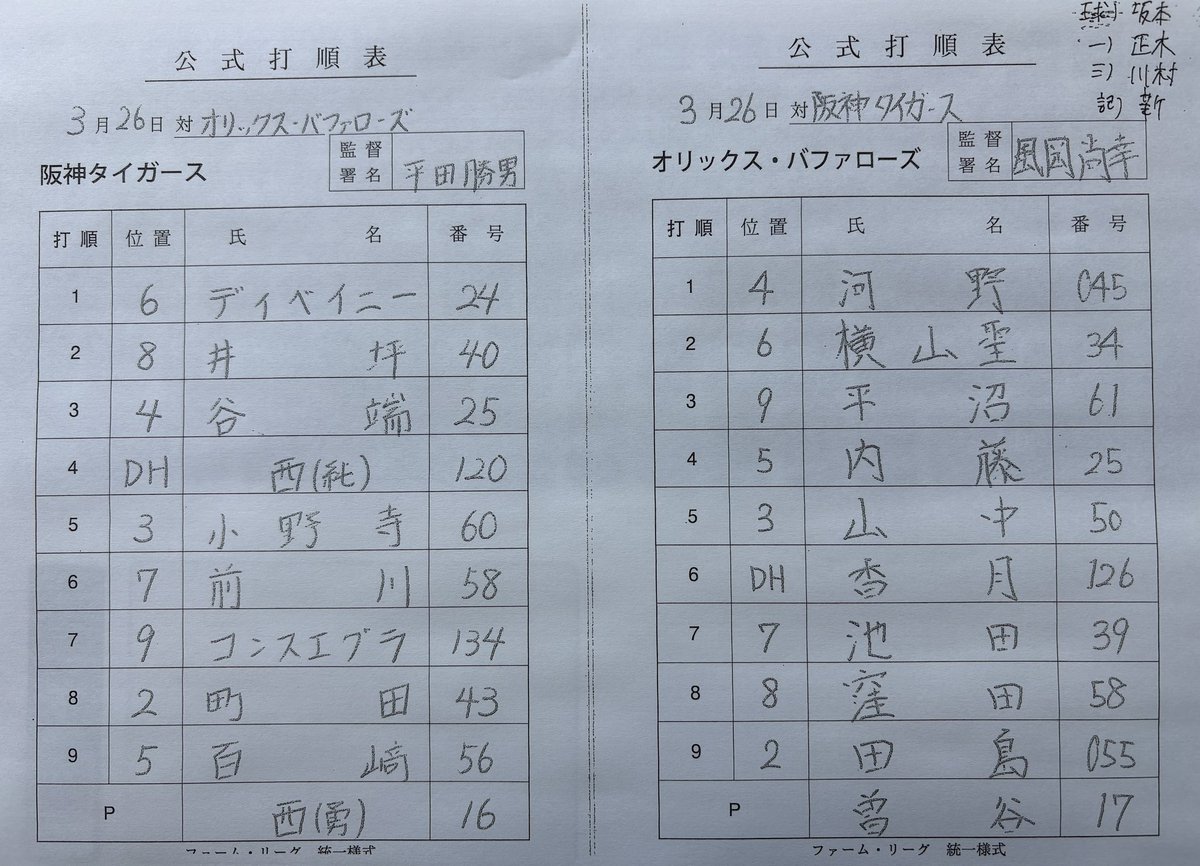 公式打順表
3月26日 対 オリックス・バファローズ
阪神タイガース 監督署名 平田勝男
打順 位置 氏名 番号
1 6 ディベイニー 24
2 8 井坪 40
3 4 谷端 25
4 DH 西(純) 120
5 3 小野寺 60
6 7 前川 58
7 9 コンスエグラ 134
8 2 町田 43
9 5 百﨑 56
P 西(勇) 16
ファーム・リーグ 統一様式
球) 坂本
一) 正木
三) 川村
記) 新
公式打順表
3月26日 対 阪神タイガース
オリックス・バファローズ 監督署名 風岡尚幸
打順 位置 氏名 番号
1 4 河野 045
2 6 横山聖 34
3 9 平沼 61
4 5 内藤 25
5 3 山中 50
6 DH 香月 126
7 7 池田 39
8 8 窪田 58
9 2 田島 055
P 曽谷 17
ファーム・リーグ 統一様式